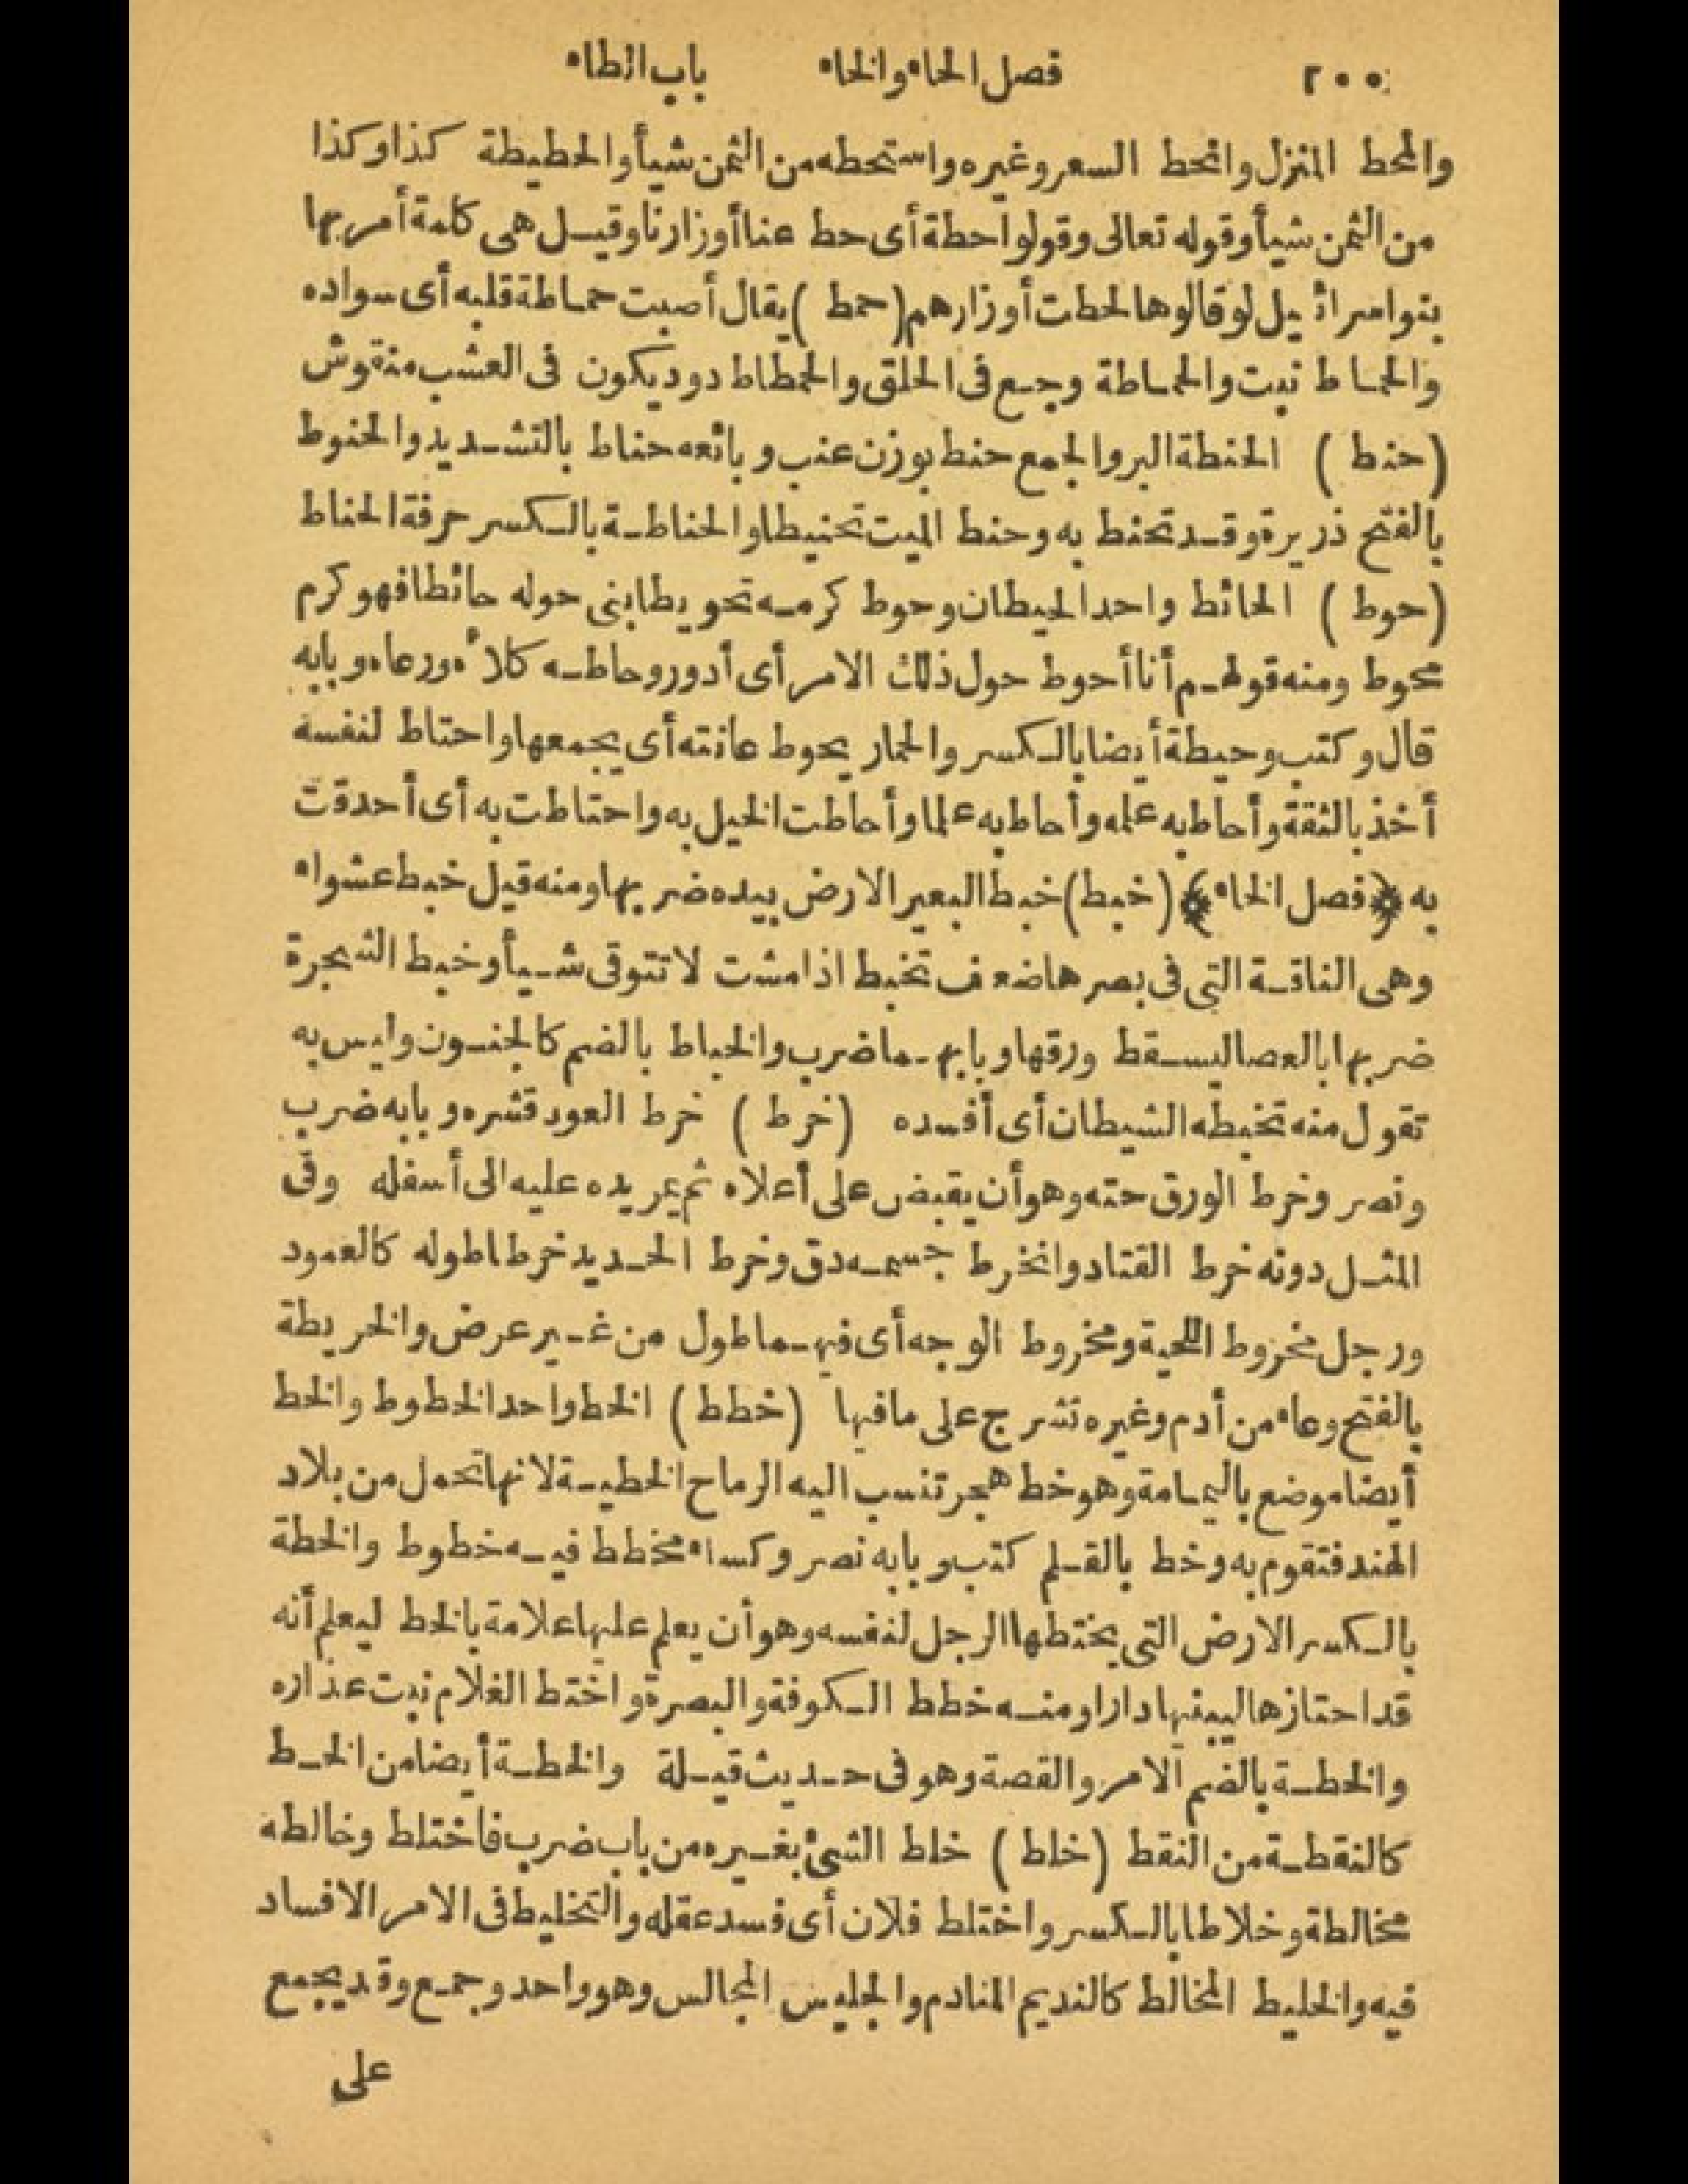 ٢٠٠ فصل الحاء والخاء باب الطاء
والمحط المنزل وانحط السعر وغيره واستحطه من الثمن شيأ والحطيطة كذا وكذا
من الثمن شيأ وقوله تعالى وقولوا حطة أى حط عنا أوزارنا وقيل هى كلمة أمر بها
بنو اسرائيل لو قالوها لحطت أوزارهم (حمط) يقال أصبت حماطة قلبه أى سواده
والحماط نبت والحماطة وجع فى الحلق والحمطاط دود يكون فى العشب منقوش
(حنط) الحنطة البر والجمع حنط بوزن عنب وبائعه حناط بالتشديد والحنوط
بالفتح ذريرة وقد تحنط به وحنط الميت تحنيطا والحناطة بالكسر حرفة الحناط
(حوط) الحائط واحد الحيطان وحوط كرمه تحويطا بنى حوله حائطا فهو كرم
محوط ومنه قولهم أنا أحوط حول ذلك الامر أى أدور وحاطه كلأه ورعاه وبابه
قال وكتب وحيطة أيضا بالكسر والحمار يحوط عانته أى يجمعها واحتاط لنفسه
أخذ بالثقة وأحاط به علمه وأحاط به علما وأحاطت الخيل به واحتاطت به أى أحدقت
به ﴿فصل الخاء﴾ (خبط) خبط البعير الارض بيده ضربها ومنه قيل خبط عشواء
وهى الناقة التى فى بصرها ضعف تخبط اذا مشت لا تتوقى شيأ وخبط الشجرة
ضربها بالعصا ليسقط ورقها وبابهما ضرب والخباط بالضم كالجنون وليس به
تقول منه تخبطه الشيطان أى أفسده (خرط) خرط العود قشره وبابه ضرب
ونصر وخرط الورق حته وهو أن يقبض على أعلاه ثم يمر يده عليه الى أسفله وفى
المثل دونه خرط القتاد وانخرط جسمه دق وخرط الحديد خرطا طوله كالعمود
ورجل مخروط اللحية ومخروط الوجه أى فيهما طول من غير عرض والخريطة
بالفتح وعاء من أدم وغيره تشرج على مافيها (خطط) الخط واحد الخطوط والخط
أيضا موضع باليمامة وهو خط هجر تنسب اليه الرماح الخطية لانها تحمل من بلاد
الهند فتقوم به وخط بالقلم كتب وبابه نصر وكساء مخطط فيه خطوط والخطة
بالكسر الارض التى يختطها الرجل لنفسه وهو أن يعلم عليها علامة بالخط ليعلم أنه
قد احتازها ليبنيها دارا ومنه خطط الكوفة والبصرة واختط الغلام نبت عذاره
والخطة بالضم الامر والقصة وهو فى حديث قيلة والخطة أيضا من الخط
كالنقطة من النقط (خلط) خلط الشئ بغيره من باب ضرب فاختلط وخالطه
مخالطة وخلاطا بالكسر واختلط فلان أى فسد عقله والتخليط فى الامر الافساد
فيه والخليط المخالط كالنديم المنادم والجليس المجالس وهو واحد وجمع وقد يجمع
على